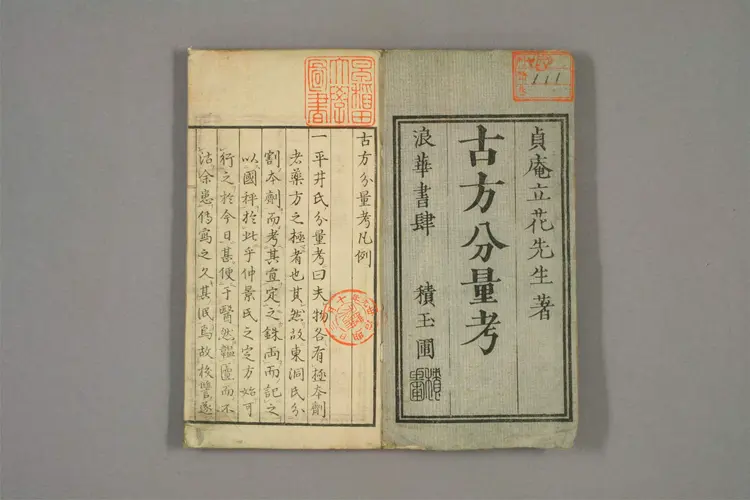 貞庵立花先生著
古方分量考
浪華書肆 積玉圃
111
早稲田
大學
圖書
古方分量考凡例
一平井氏分量考曰夫物各有極本劑
者藥方之極者也其然故東洞氏分
割本劑而考其宜定之銖両而記之
以國秤於此乎仲景氏之定方始可
行之於今日甚便于醫然韞匵而不
沽余患傳寫之久其泯焉故校讐遂